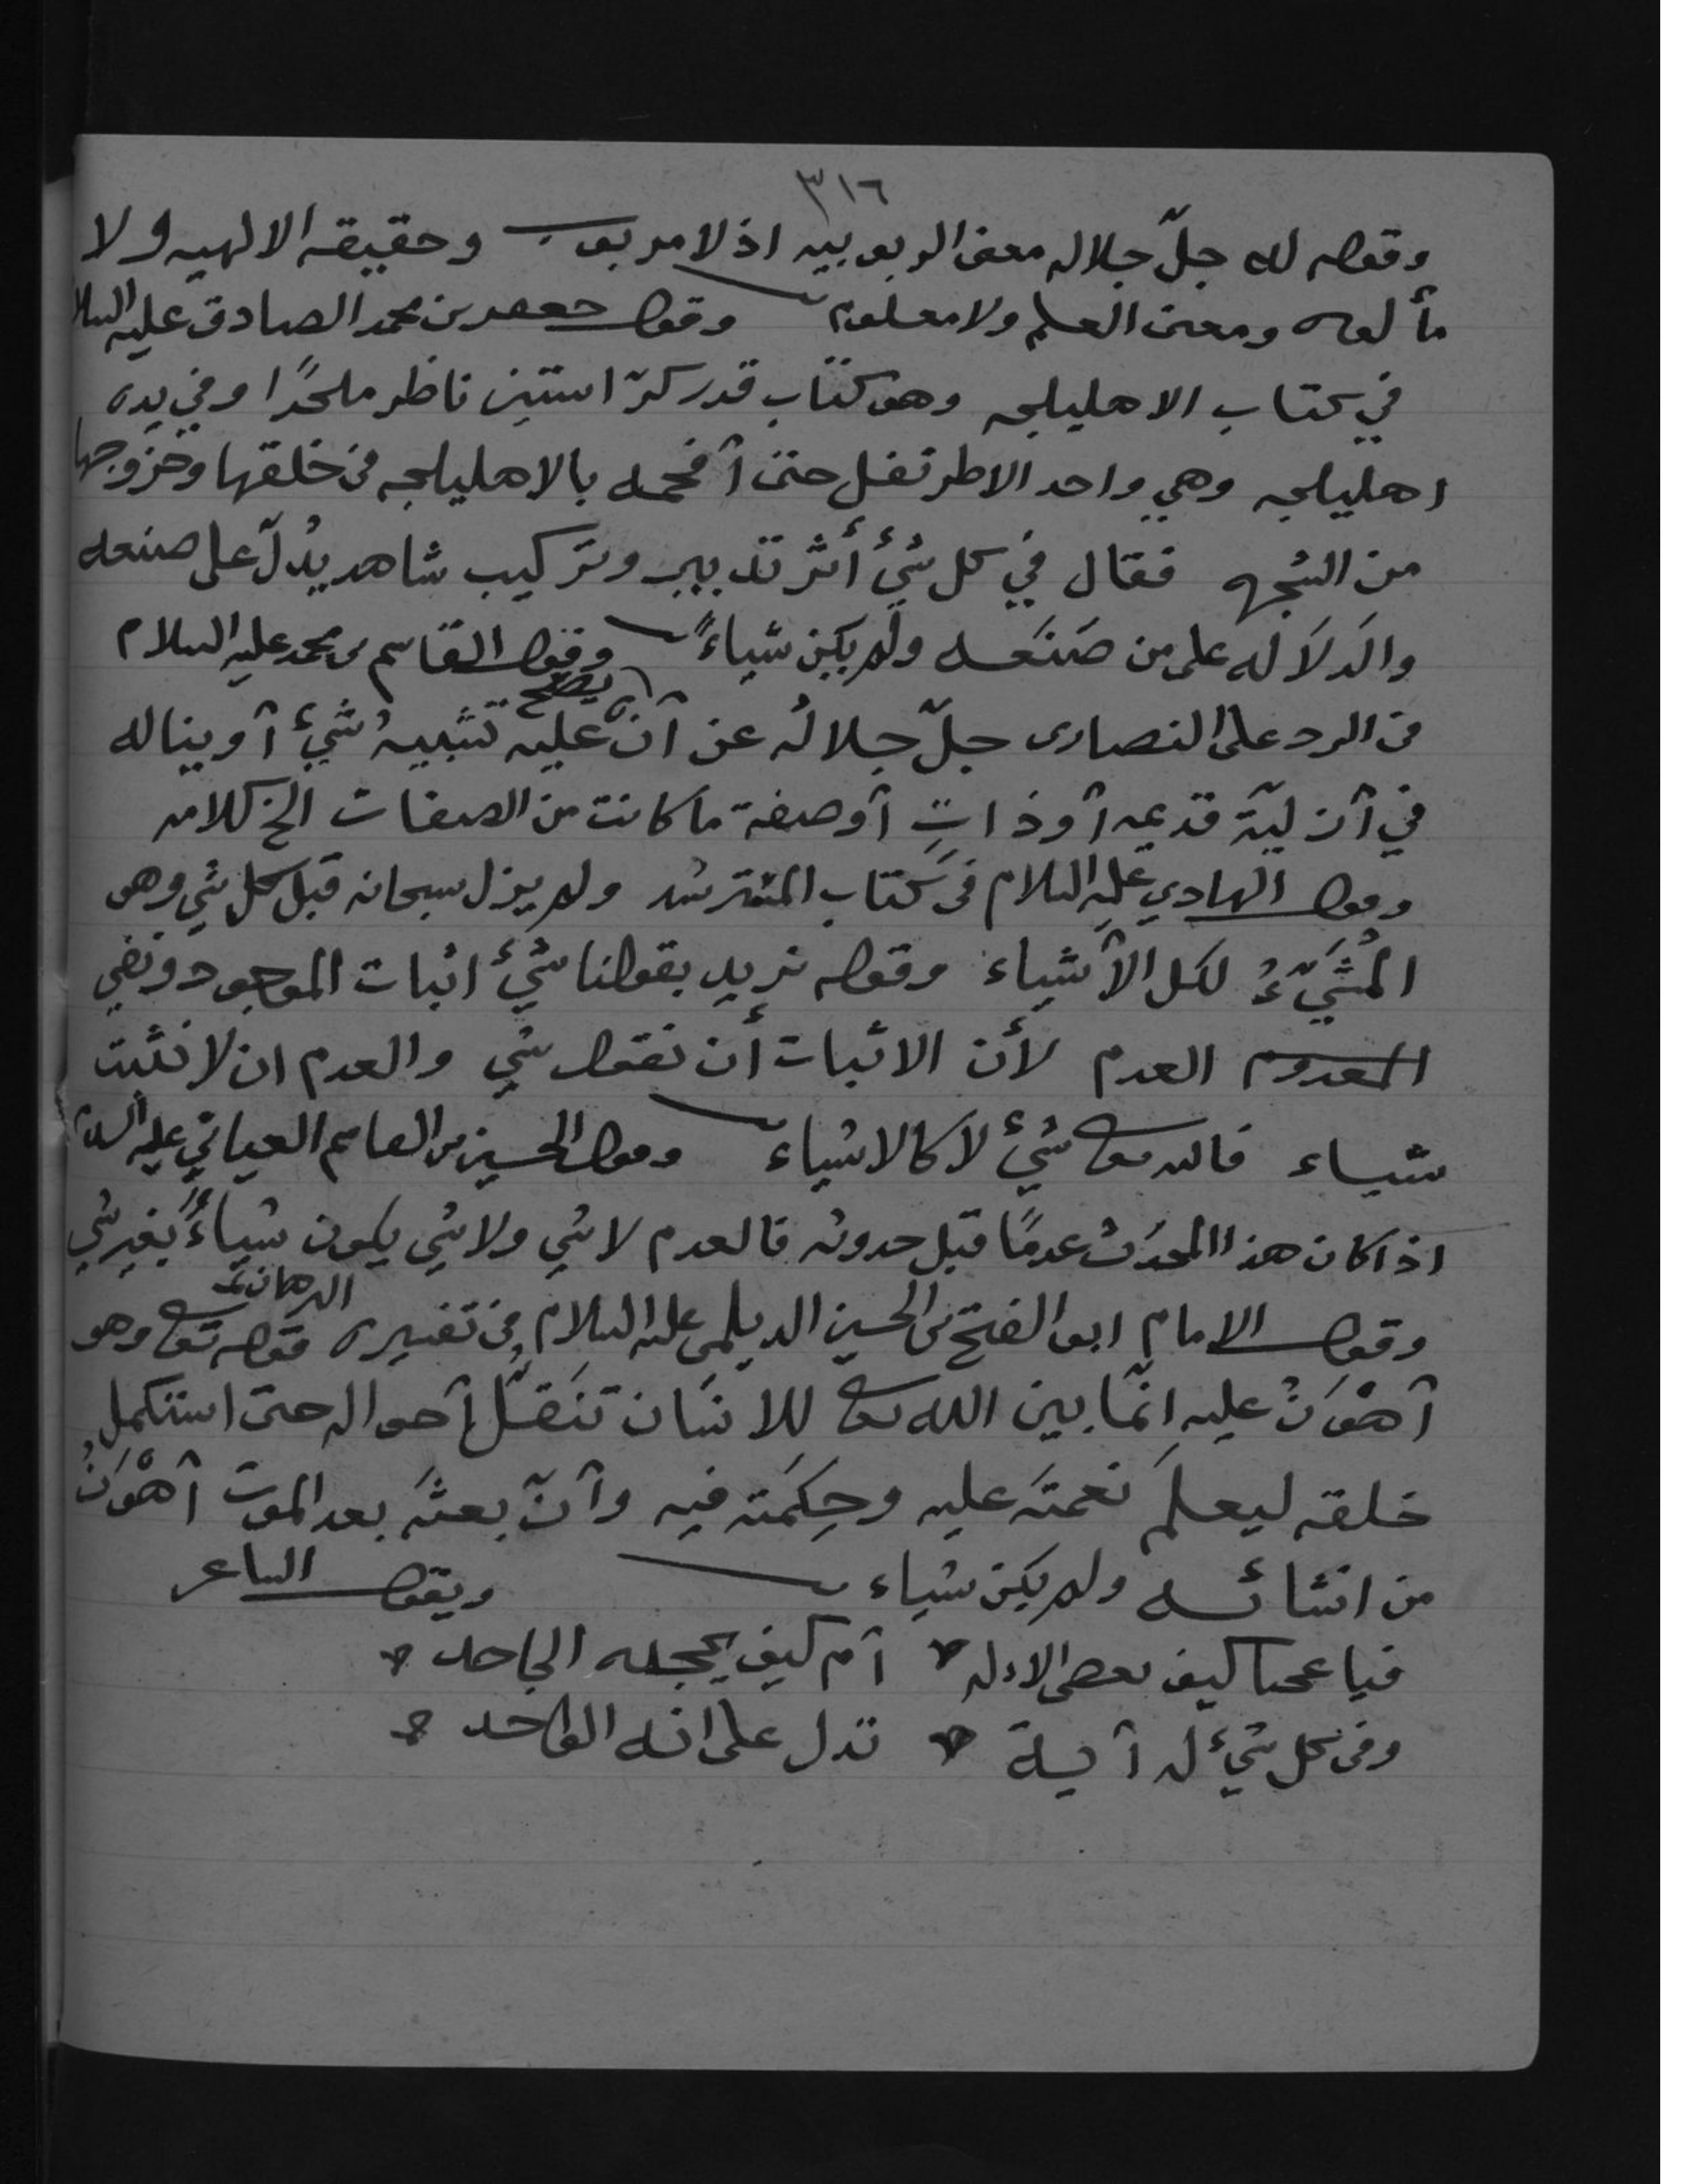 ٣١٦
وقوله له جلّ جلاله معنى الربوبيه اذ لا مربوب وحقيقه الالهيه ولا
مألوه ومعنى العلم ولا معلوم وقول جعفر بن محمد الصادق عليه السلام
في كتاب الاهليلجه وهو كتاب قدر ناظر ملحدًا وفي يده
اهليلجه وهي واحد الاطريفل حتى أفحمه بالاهليلجه في خلقها وخروجها
من الشجره فقال في كل شيٍء أثر تدبير وتركيب شاهد يدُلّ على صنعه
والدَلاَله على من صَنَعه ولم يكن شياءً وقول القاسم بن محمد عليه السلام
في الرد على النصارى جلّ جلالُه عن أن يصح عليه تشبيهُ شيٍء أو يناله
في أزليّة قديمه أو ذاتٍ أو صفة ما كانت من الصفات الخ كلامه
وقول الهادي عليه السلام في كتاب المسترشد ولم يزل سبحانه قبل كل شي وهو
المُشَيّءُ لكل الأشياء وقوله نريد بقولنا شيٌء اثبات الموجود ونفي
المعدوم العدم لأن الاثبات أن نقول شي والعدم ان لا نثبت
شياء فالله تعالى شيٌء لا كالاشياء وقول الحسين بن القاسم العياني عليه السلام
اذا كان هذا المحدَث عدمًا قبل حدوثه فالعدم لا شي ولا شي يكون شياءً بغير شي
وقول الامام ابو الفتح بن الحسين الديلمي عليه السلام في تفسيره البرهان قوله تعالى وهو
أهْوَنُ عليه انمّا بين الله تعالى للانسَان تنَقلّ أحواله حتى استكمل
خلقه ليعلمَ نعمتَه عليه وحِكمَته فيه وأنّ بعثَه بعد الموت أهْوَنُ
من انشائه ولم يكن شياء ويقول الشاعر
فيا عجبا كيف يعصى الاله أم كيف يجحده الجاحد
وفي كل شيٍء له أية تدل على انه الواحد